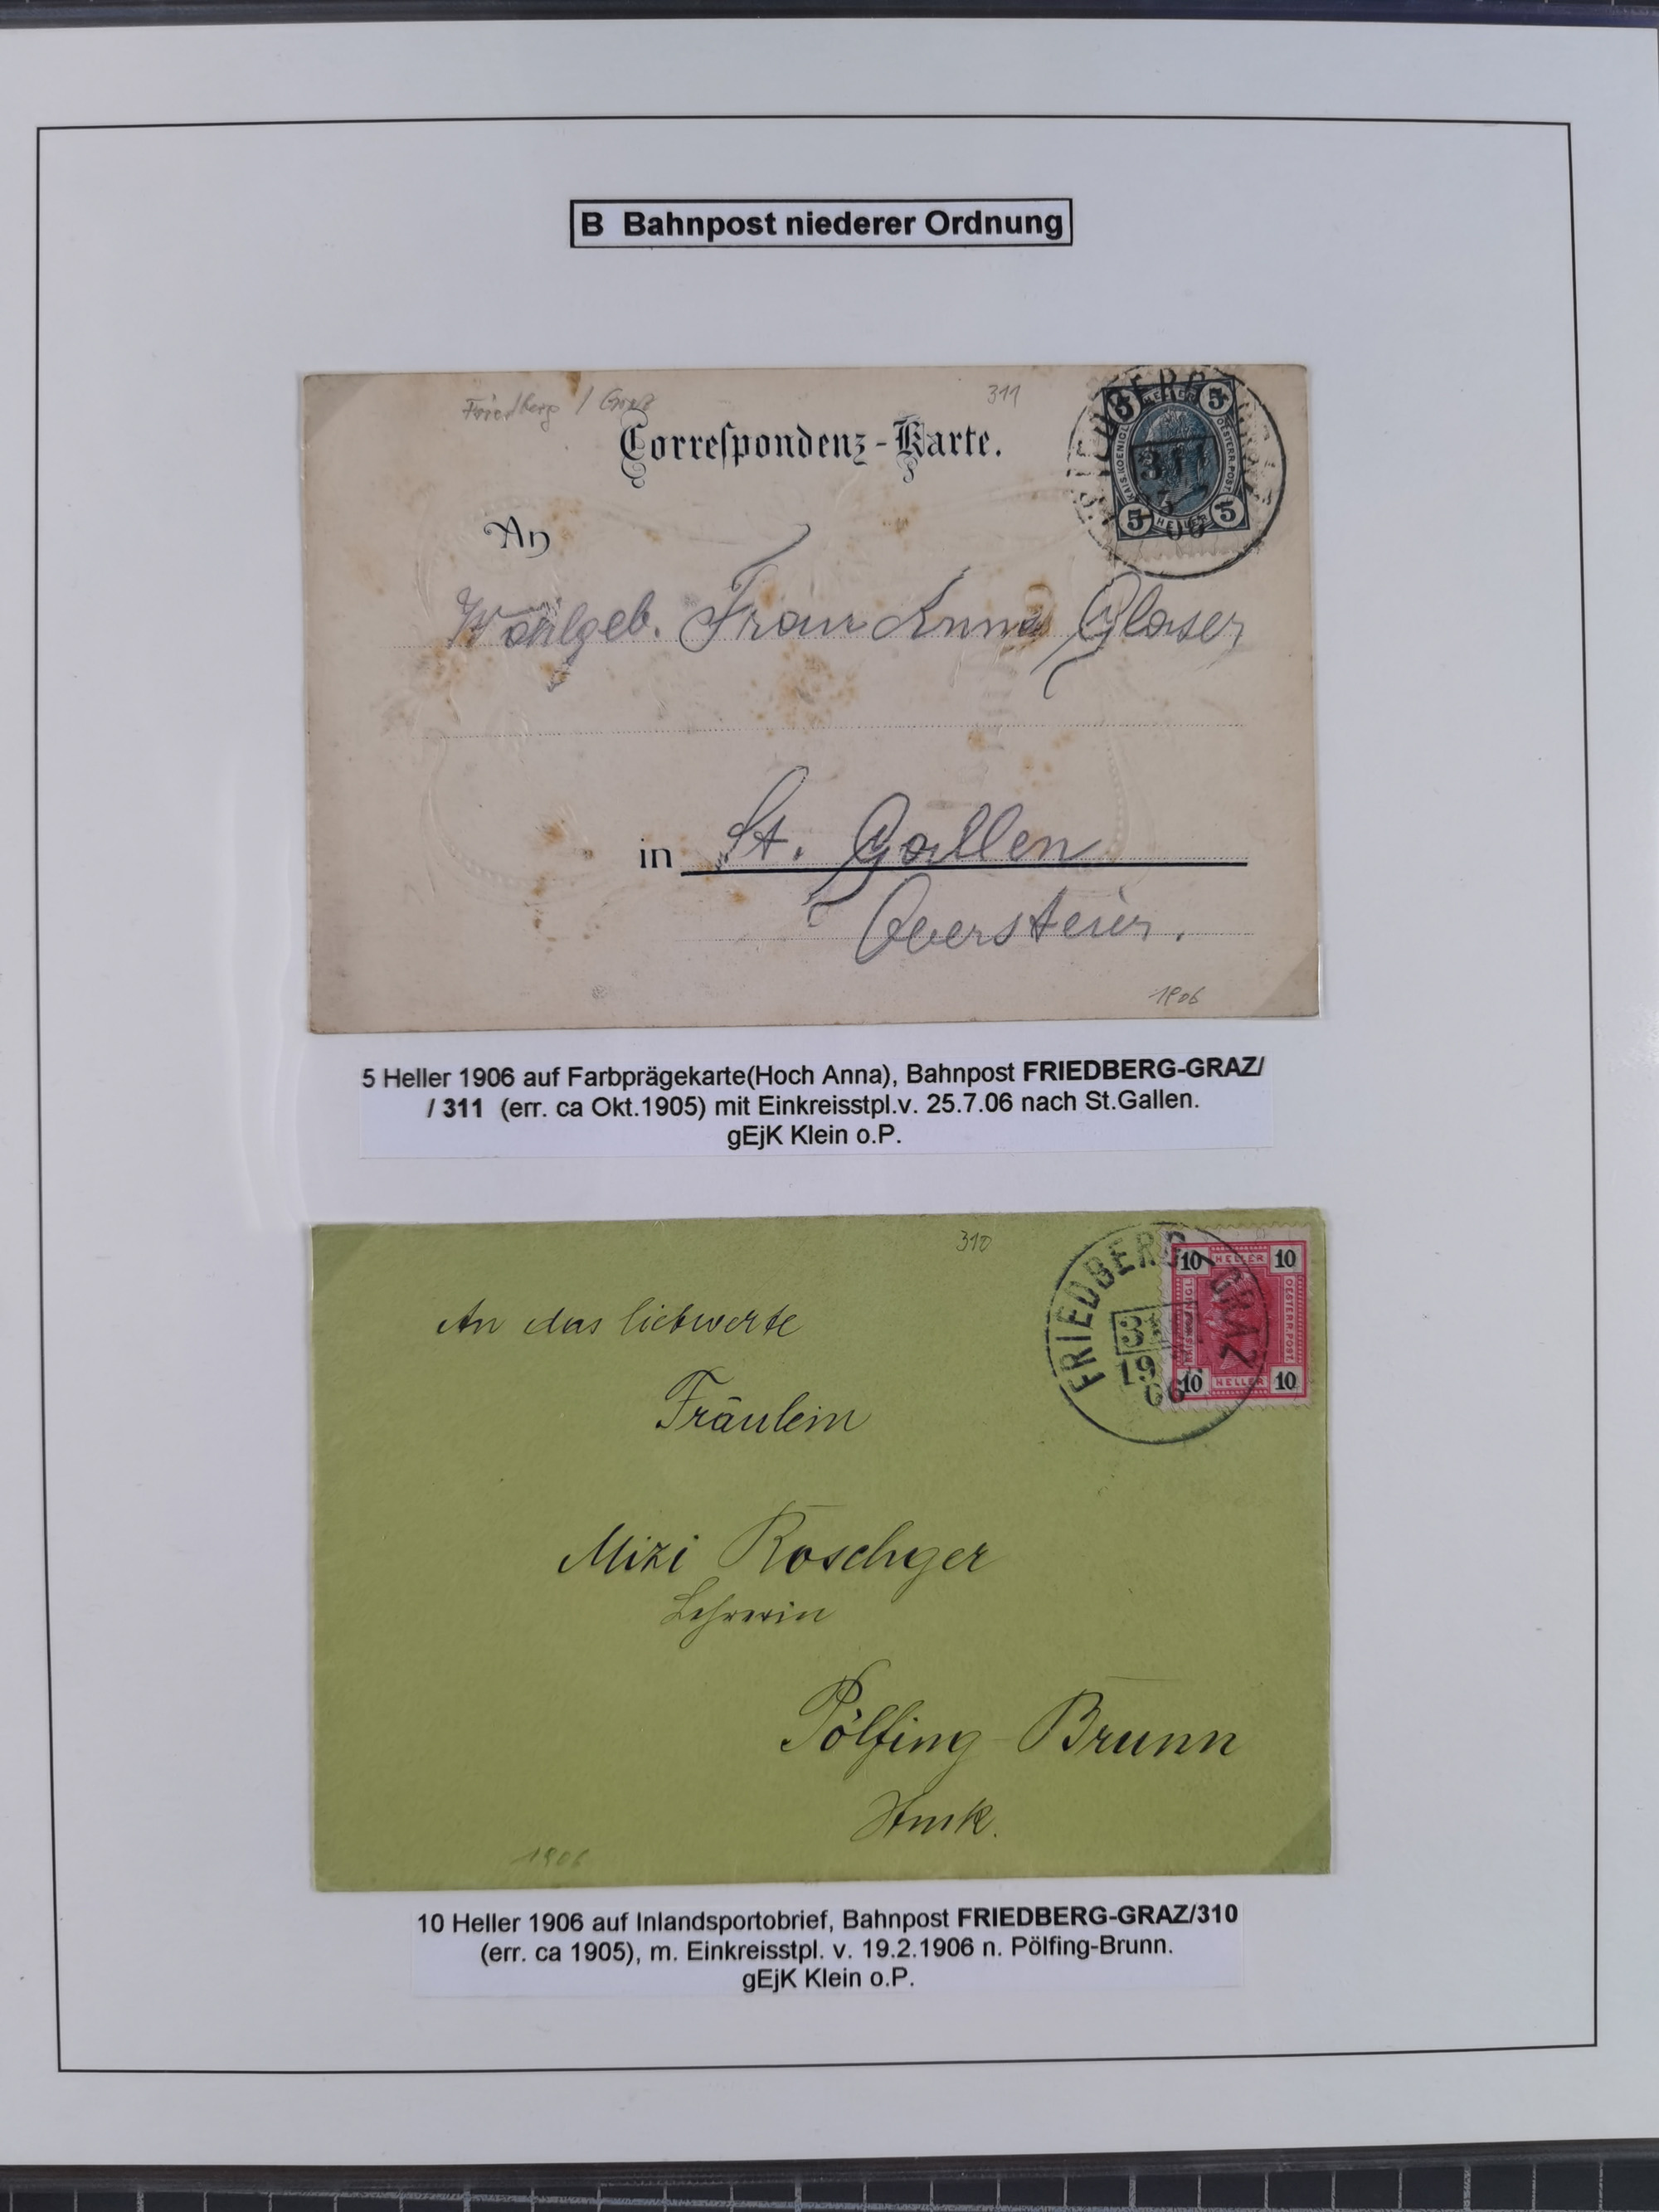 B Bahnpost niederer Ordnung
Friedberg / Graz
311
Correſpondenz-Karte.
5 HELLER 5
KAIS. KOENIGL. OESTERR. POST.
5 HELLER 5
311
06
An
Wohlgeb. Frau Anna Glaser
in St. Gallen
Obersteier.
1906
5 Heller 1906 auf Farbprägekarte(Hoch Anna), Bahnpost FRIEDBERG-GRAZ/
/ 311 (err. ca Okt.1905) mit Einkreisstpl.v. 25.7.06 nach St.Gallen.
gEjK Klein o.P.
310
FRIEDBERG / GRAZ
19
06
10 HELLER 10
OESTERR.POST.
10 HELLER 10
An das liebwerte
Fräulein
Mizi Roschger
Lehrerin
Pölfing-Brunn
1906
10 Heller 1906 auf Inlandsportobrief, Bahnpost FRIEDBERG-GRAZ/310
(err. ca 1905), m. Einkreisstpl. v. 19.2.1906 n. Pölfing-Brunn.
gEjK Klein o.P.